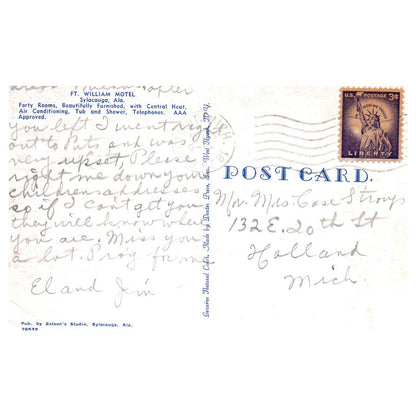 FT. WILLIAM MOTEL
Sylacauga, Ala.
Forty Rooms, Beautifully Furnished, with Central Heat,
Air Conditioning, Tub and Shower, Telephones. AAA
Approved.
you left I went right
out to Pats and was
very upset. Please
right me down your
childrens addresses
so if I cant get you
they will know where
you are. Miss you
a lot. Pray for me
El and Jim
Pub. by Belson's Studio, Sylacauga, Ala.
Genuine Natural Color. Made by Dexter Press, Inc., West Nyack, N.Y.
U.S. POSTAGE 3¢
IN GOD WE TRUST
LIBERTY
POST CARD
Mr. Mrs. Case
132 E. 20th St
Holland
Mich.